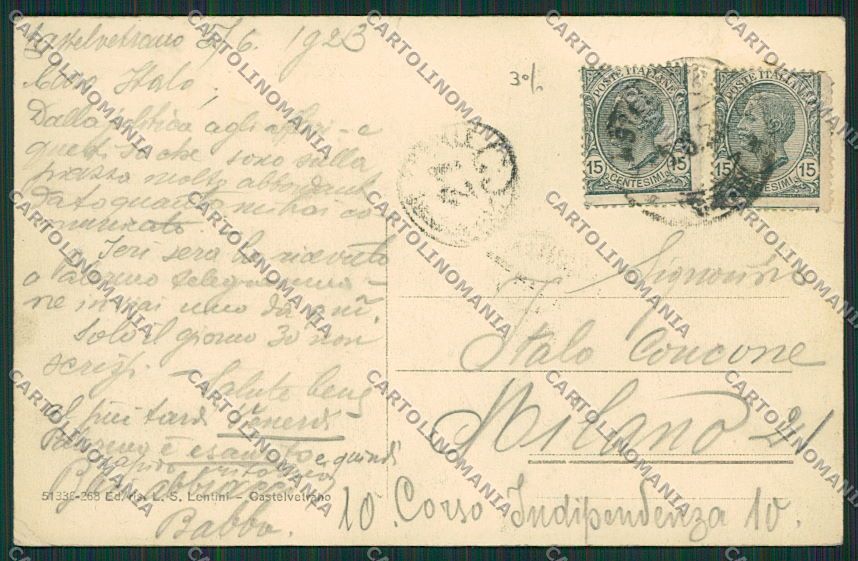 Castelvetrano 5/6. 1923
Caro Italo,
Dalla politica agli affari - e
questi so che sono sulla
piazza molto abbondanti
da quanto mi hai co
municato.
Ieri sera ho ricevuto
a Palermo telegramma -
ne inviai uno da qui.
Solo il giorno 30 non
scrissi. Salute bene
al più tardi Venerdì
Palermo è esaurito e quindi
rapido ritorno
Baci abbracci
Babbo.
51336-268 Ed. ris. L. S. Lentini - Castelvetrano
3%
POSTE ITALIANE
15 15
CENTESIMI
POSTE ITALIANE
15 15
CENTESIMI
Signorino
Italo Concone
Milano 21
10. Corso Indipendenza 10.
CARTOLINOMANIA